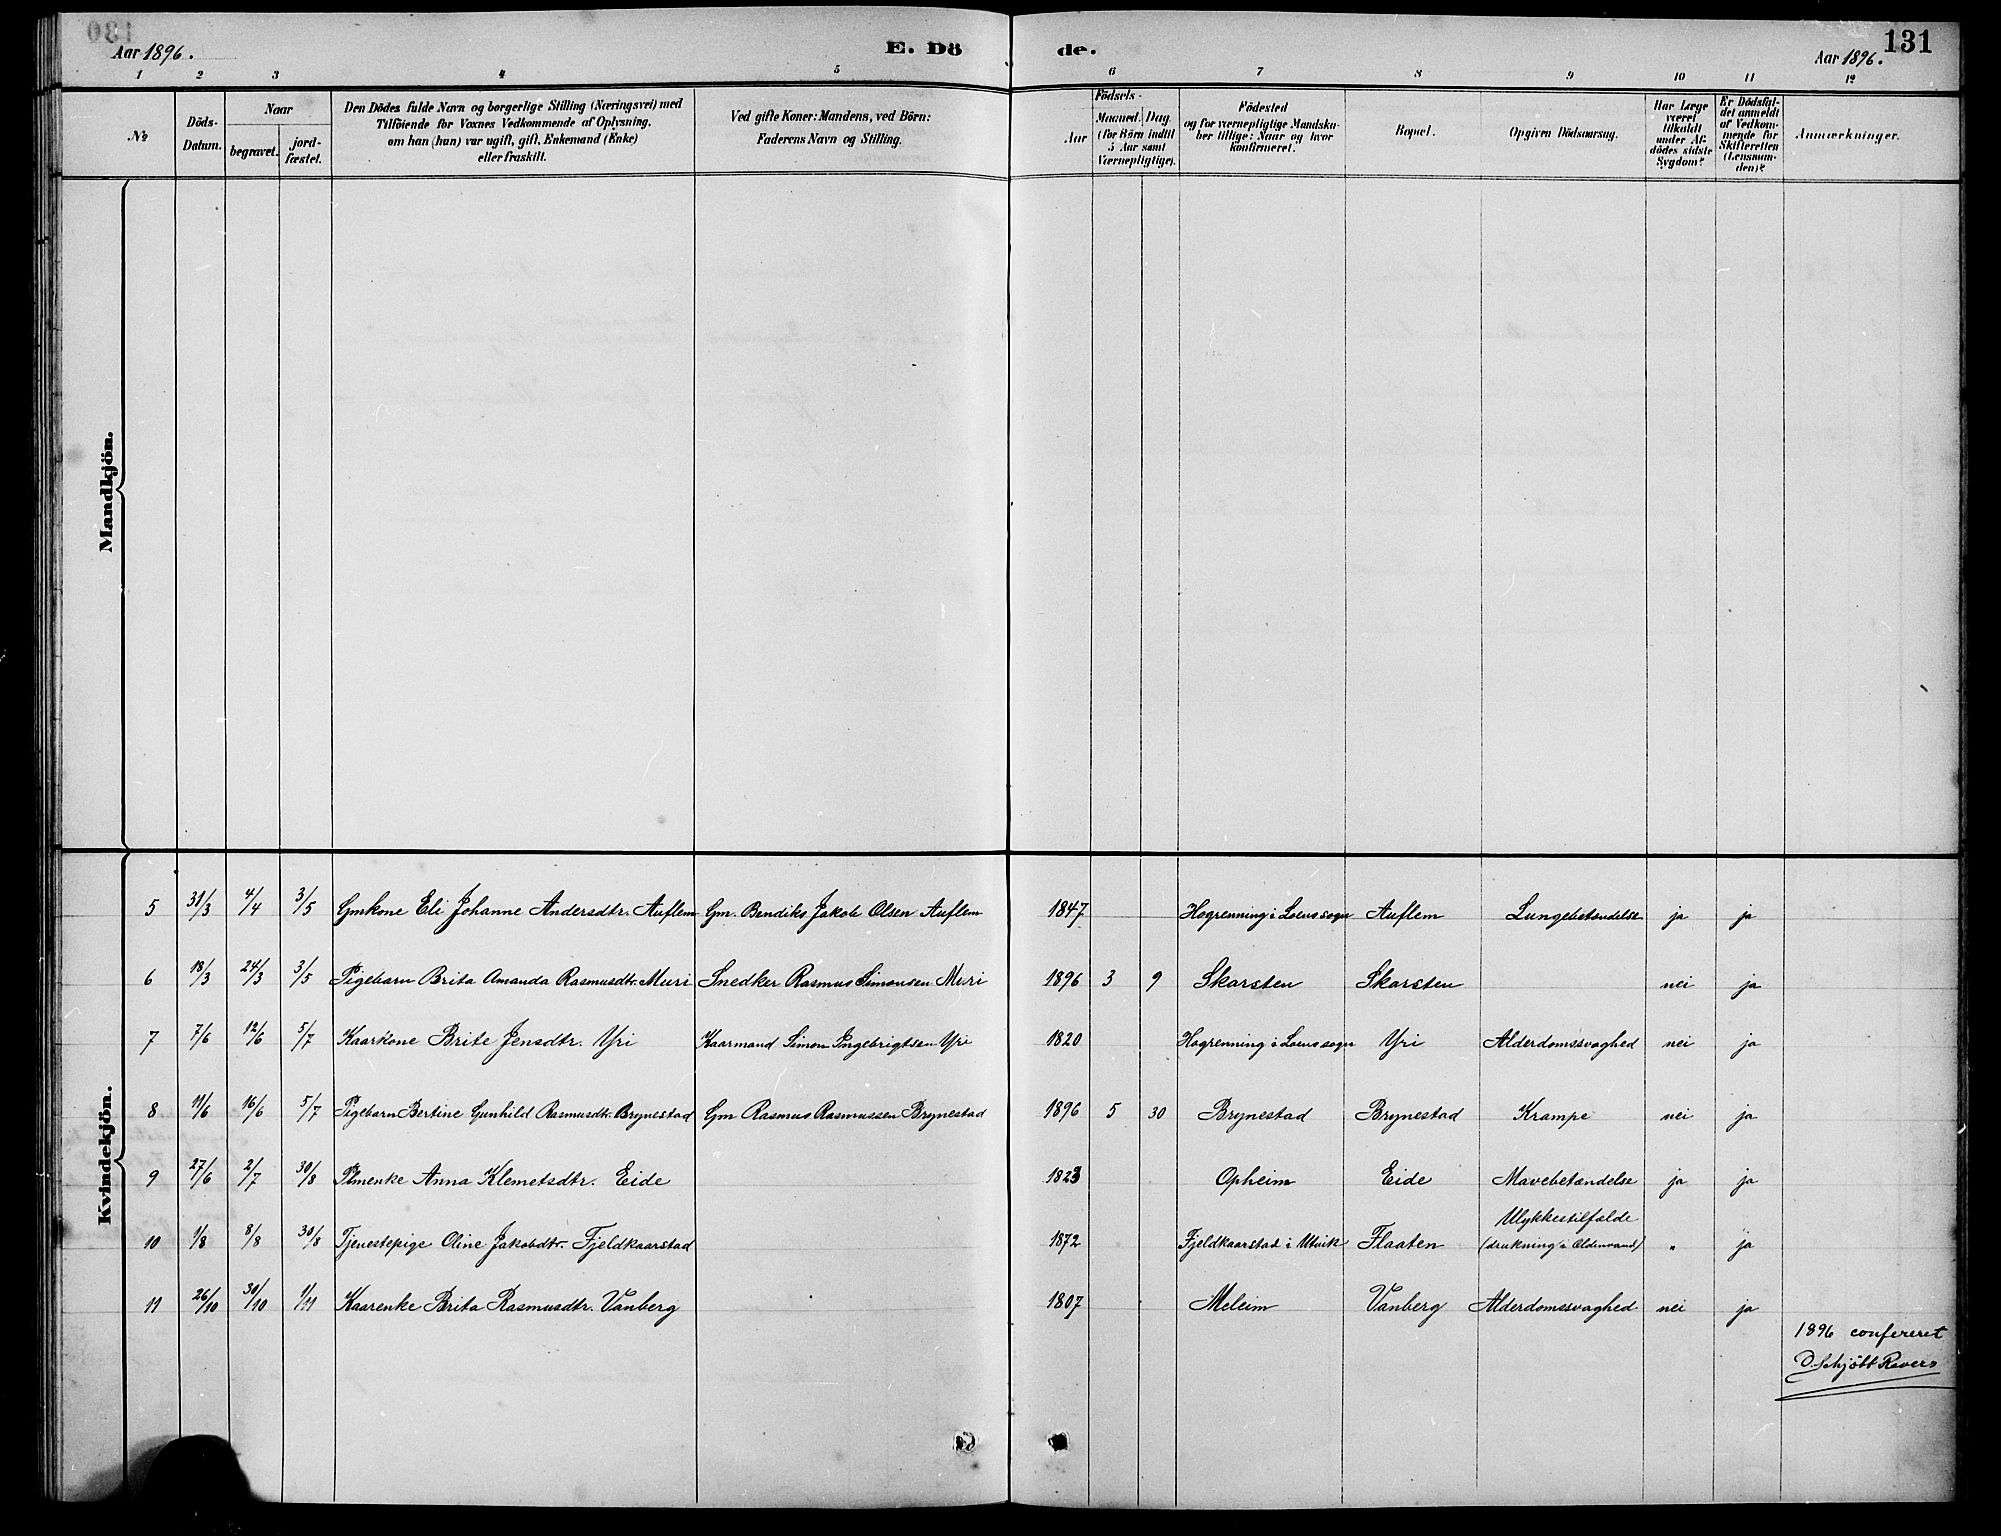 Aar 1896.
E. Dö
de.
131
Aar 1896.
1 2 3 4 5 6 7 8 9 10 11 12
№
Döds-
Datum.
Naar
begravet.
jord-
fæstet.
Den Dödes fulde Navn og borgerlige Stilling (Næringsvei) med
Tilföiende for Voxnes Vedkommende af Oplysning,
om han (hun) var ugift, gift, Enkemand (Enke)
eller fraskilt.
Ved gifte Koner: Mandens, ved Börn:
Faderens Navn og Stilling.
Födsels-
Aar
Maaned. Dag.
(for Börn indtil
5 Aar samt
Værnepligtige).
Födested
og for værnepligtige Mandska-
ber tillige: Naar og hvor
konfirmeret.
Bopæl.
Opgiven Dödsaarsag.
Har Læge
været
tilkaldt
under Af-
dödes sidste
Sygdom?
Er Dödsfal-
det anmeldt
af Vedkom-
mende for
Skifteretten
(Lensman-
den)?
Anmærkninger.
Mandkjön.
Kvindekjön.
5 31/3 4/4 3/5 Gmkone Eli Johanne Andersdtr. Auflem Gm. Bendiks Jakob Olsen Auflem 1847 Hogrenning i Loens sogn Auflem Lungebetændelse ja ja
6 18/3 24/3 3/5 Pigebarn Brita Amanda Rasmusdtr. Muri Snedker Rasmus Simonsen Muri 1896 3 9 Skarsten Skarsten nei ja
7 7/6 12/6 5/7 Kaarkone Brite Jensdtr. Yri Kaarmand Simon Ingebrigtsen Yri 1820 Hogrenning i Loens sogn Yri Alderdomssvaghed nei ja
8 11/6 16/6 5/7 Pigebarn Bertine Gunhild Rasmusdt. Brynestad Gm Rasmus Rasmussen Brynestad 1896 5 30 Brynestad Brynestad Krampe nei ja
9 27/6 2/7 30/8 Anna Klemetsdtr. Eide 1823 Opheim Eide Mavebetændelse ja ja
10 1/8 8/8 30/8 Tjenestepige Oline Jakobdtr. Fjeldkaarstad 1872 Fjeldkaarstad i Utvik Flaaten Ulykkestilfælde
(drukning i Oldenvand) " ja
11 26/10 30/10 1/11 Kaarenke Brita Rasmusdtr. Vanberg 1807 Meleim Vanberg Alderdomssvaghed nei ja
1896 confereret
D. Schjött Revers